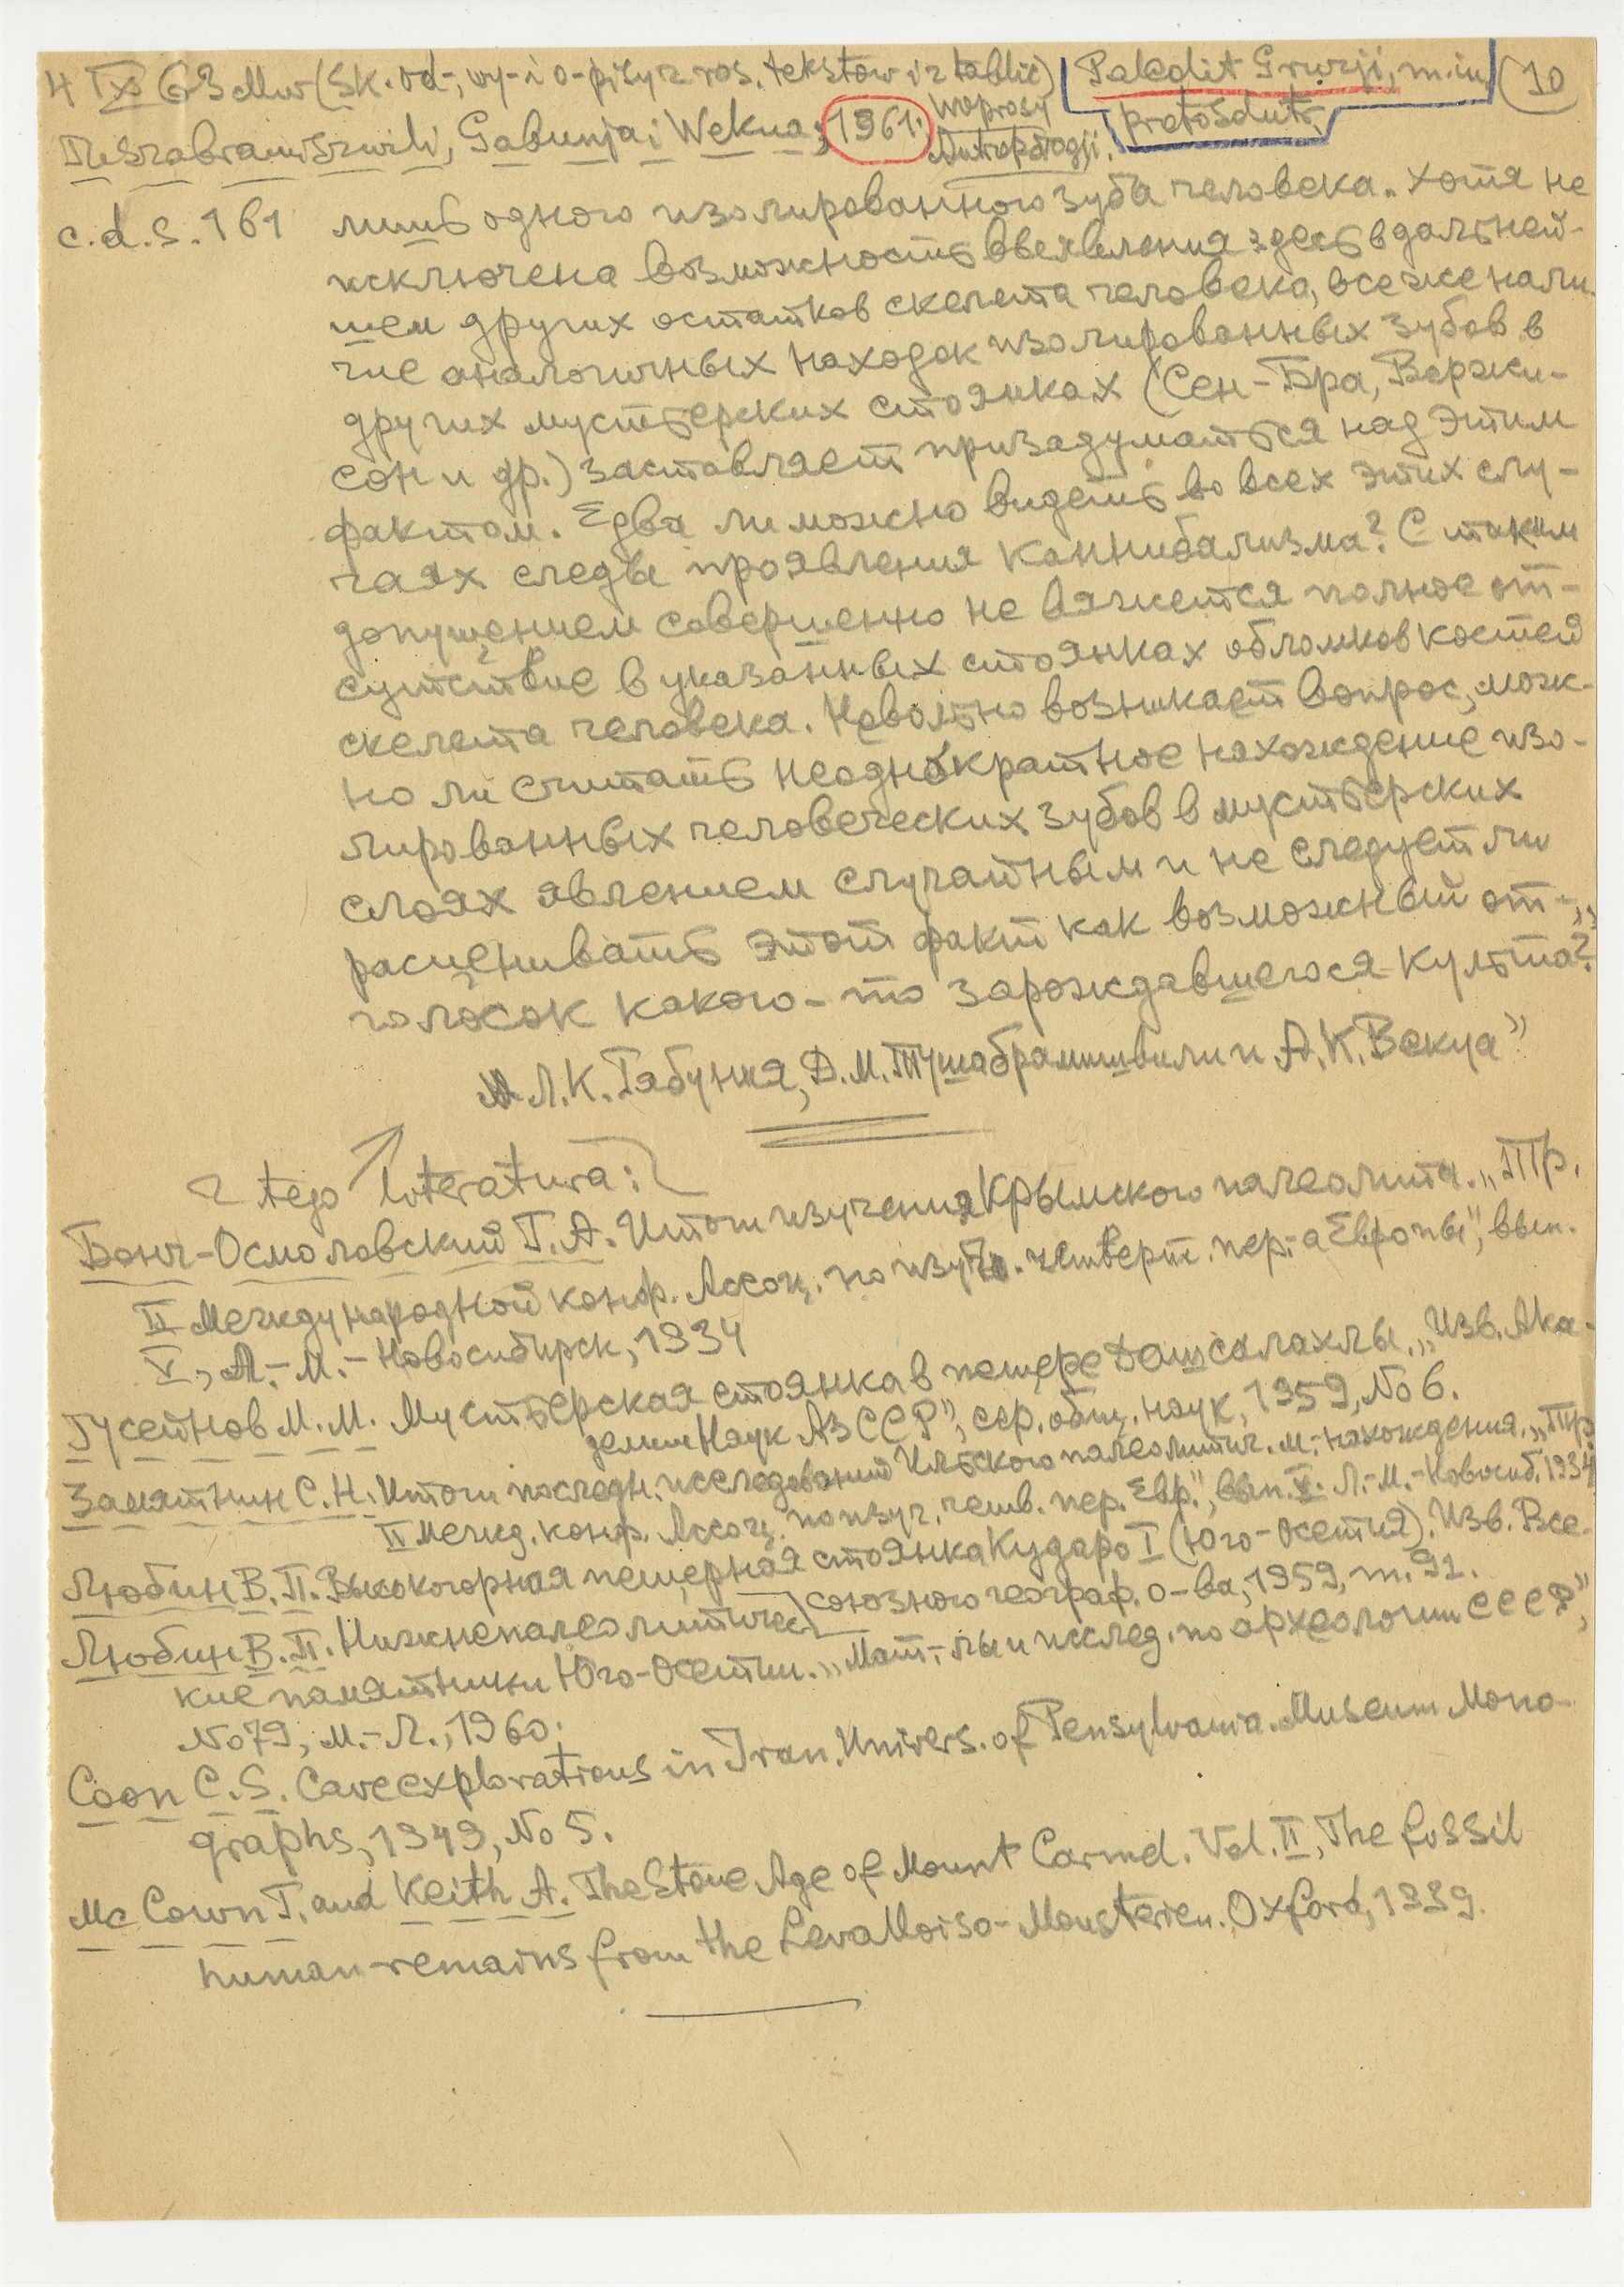 4 IX 63 Mw (Sk. od-, wy- i o-pisy z ros. tekstów i z tablic) Paleolit Gruzji, m.in. (10
Tuszabramiszwili, Gabunja i Wekua, 1961. Woprosy Antropologji. protosdut.
c.d.s. 161 лишь одного изолированного зуба человека. Хотя не
исключена возможность выявления здесь в дальней-
шем других остатков скелета человека, все же нали-
чие аналогичных находок изолированных зубов в
других мустьерских стоянках (Сен-Бра, Вержи-
сон и др.) заставляет призадуматься над этим
фактом. Едва ли можно видеть во всех этих слу-
чаях следы проявления каннибализма? С таким
допущением совершенно не вяжется полное от-
сутствие в указанных стоянках обломков костей
скелета человека. Невольно возникает вопрос, мож-
но ли считать неоднократное нахождение изо-
лированных человеческих зубов в мустьерских
слоях явлением случайным и не следует ли
расценивать этот факт как возможный от-
голосок какого-то зарождавшегося культа?"
Л.К. Габуния, Д.М. Тушабрамишвили и А.К. Векуа"
z tego literatura:
Бонч-Осмоловский Г.А. Итоги изучения Крымского палеолита. „Тр.
II Международной конф. Ассоц. по изуч. четверт. пер-а Европы", вып.
V, Л.-М.-Новосибирск, 1934
Гусейнов М.М. Мустьерская стоянка в пещере Дашсалахлы. „Изв. Ака-
демии Наук АзССР", сер. общ. наук, 1959, No 6.
Замятнин С.Н. Итоги последн. исследований Ильского палеолитич. м-нахождения. „Тр.
II Межд. конф. Ассоц. по изуч. четв. пер. Евр.", вып. V. Л.-М.-Новосиб. 1934
Любин В.П. Высокогорная пещерная стоянка Кударо I (Юго-Осетия). Изв. Все-
союзного географ. о-ва, 1959, т. 91.
Любин В.П. Нижнепалеолитичес
кие памятники Юго-Осетии. „Мат-лы и исслед. по археологии СССР",
No 79, М.-Л., 1960.
Coon C.S. Cave explorations in Iran. Univers. of Pensylvania. Museum Mono-
graphs, 1949, No 5.
Mc Cown T. and Keith A. The Stone Age of Mount Carmel. Vol. II, The fossil
human remains from the Levalloiso-Mousterien. Oxford, 1939.